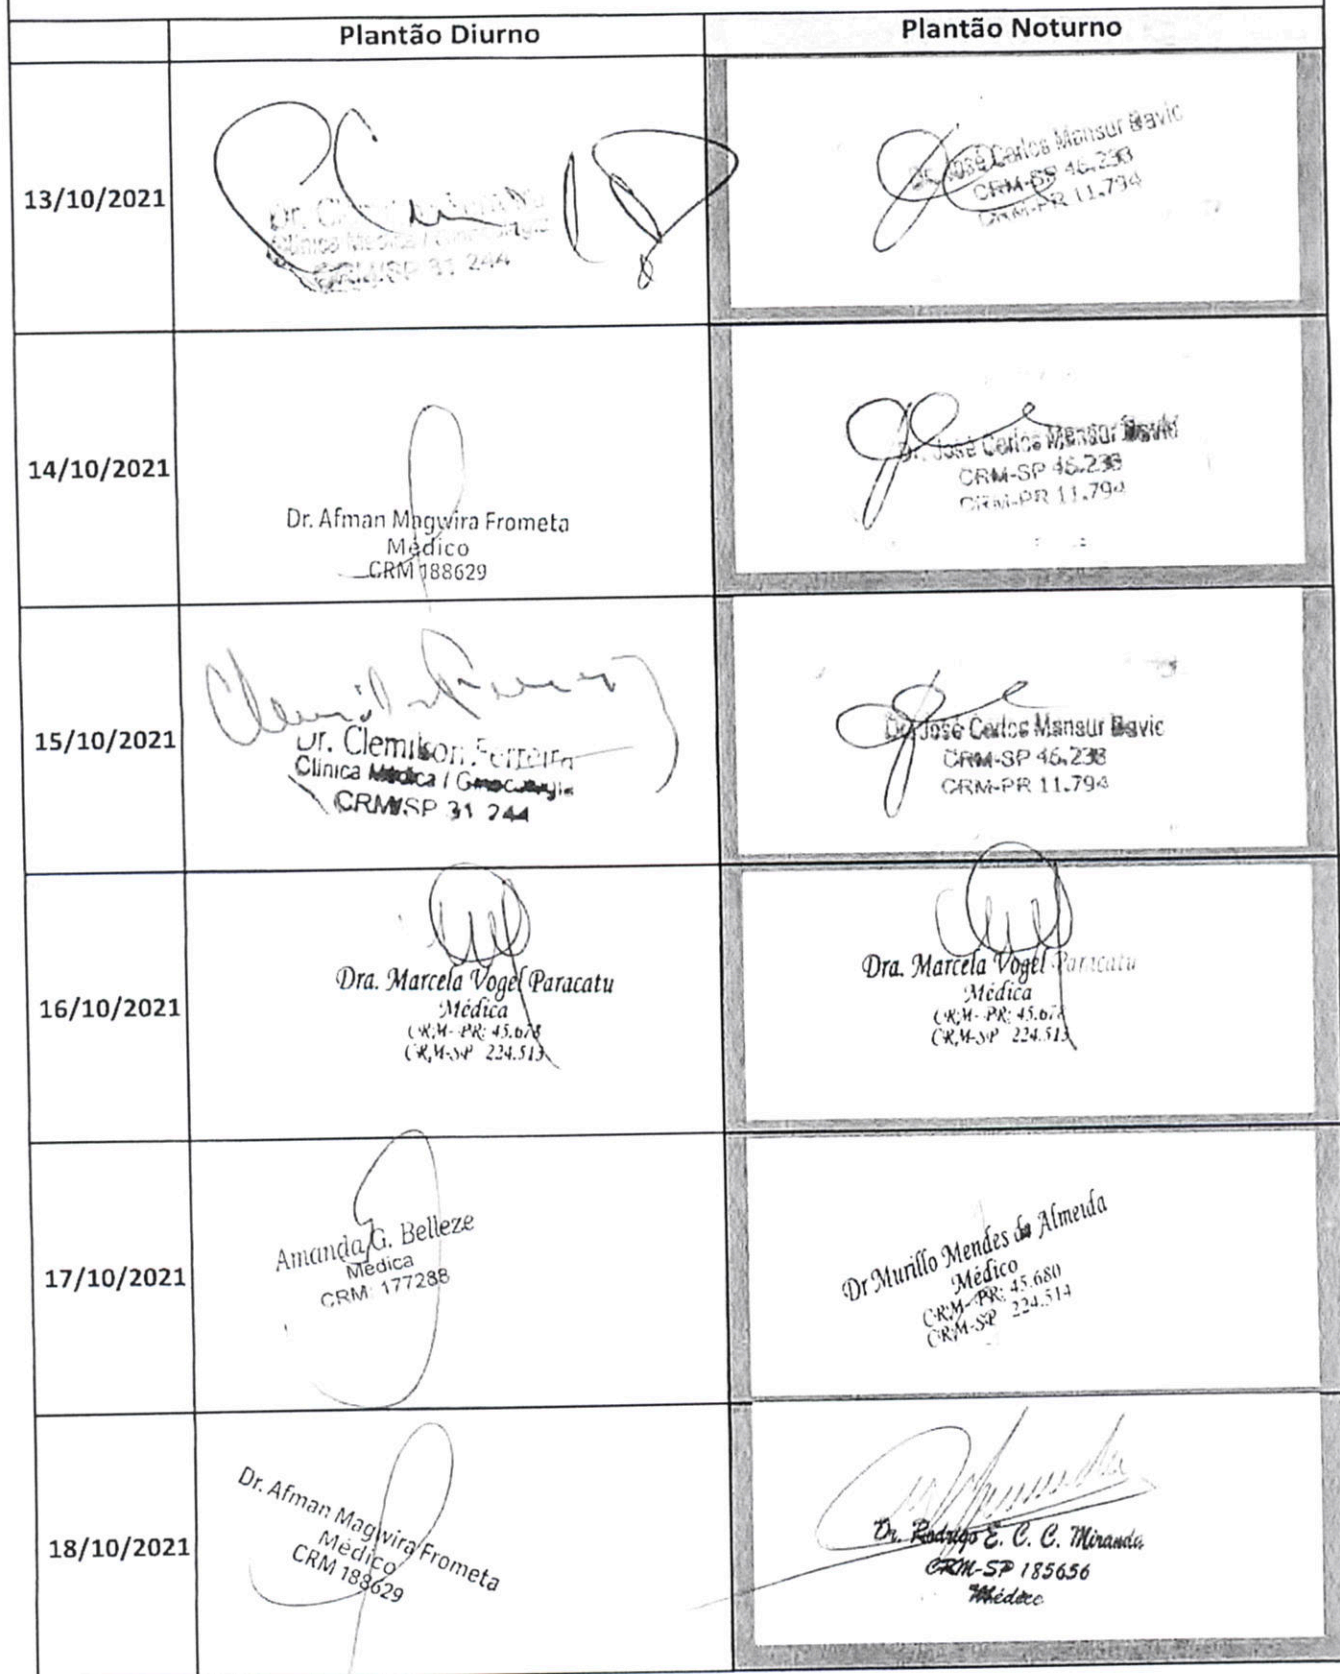 Plantão Diurno
Plantão Noturno
13/10/2021
Dr.
Clínica Médica /
CRM/SP 31 244
Dr. José Carlos Mansur
CRM-SP 46.238
CRM-PR 11.794
14/10/2021
Dr. Afman Magwira Frometa
Médico
CRM 188629
Dr. José Carlos Mansur
CRM-SP 46.238
CRM-PR 11.794
15/10/2021
Dr. Clemilson Ferreira
Clínica Médica /
CRM/SP 31 244
Dr. José Carlos Mansur
CRM-SP 46.238
CRM-PR 11.794
16/10/2021
Dra. Marcela Vogel Paracatu
Médica
CRM-PR: 45.678
CRM-SP 224.513
Dra. Marcela Vogel Paracatu
Médica
CRM-PR: 45.678
CRM-SP 224.513
17/10/2021
Amanda G. Belleze
Médica
CRM: 177288
Dr Murillo Mendes de Almeida
Médico
CRM-PR: 45.680
CRM-SP 224.514
18/10/2021
Dr. Afman Magwira Frometa
Médico
CRM 188629
Dr. Rodrigo E. C. C. Miranda
CRM-SP 185656
Médico